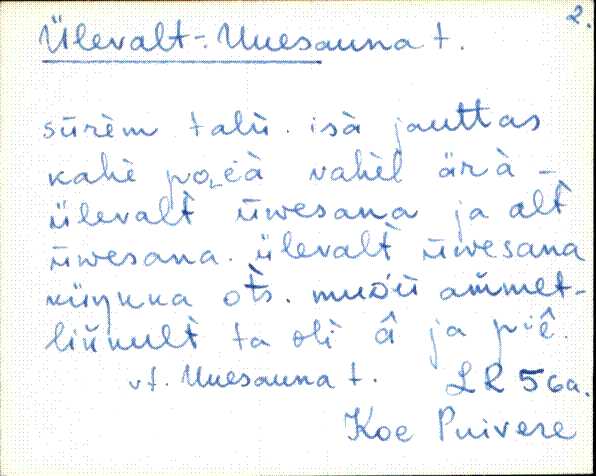 2.
Ülevalt-Uuesauna t.
sūrèm talù. isà jauttas
kahè poià vahèl ärà -
ülevalt̀ ūwesana ja alt̀
ūwesana. ülevalt̀ ūwesana
ot̀s. ammet-
linnult̀ ta olì â ja piê.
vt. Uuesauna t. LR 56a.
Koe Puivere